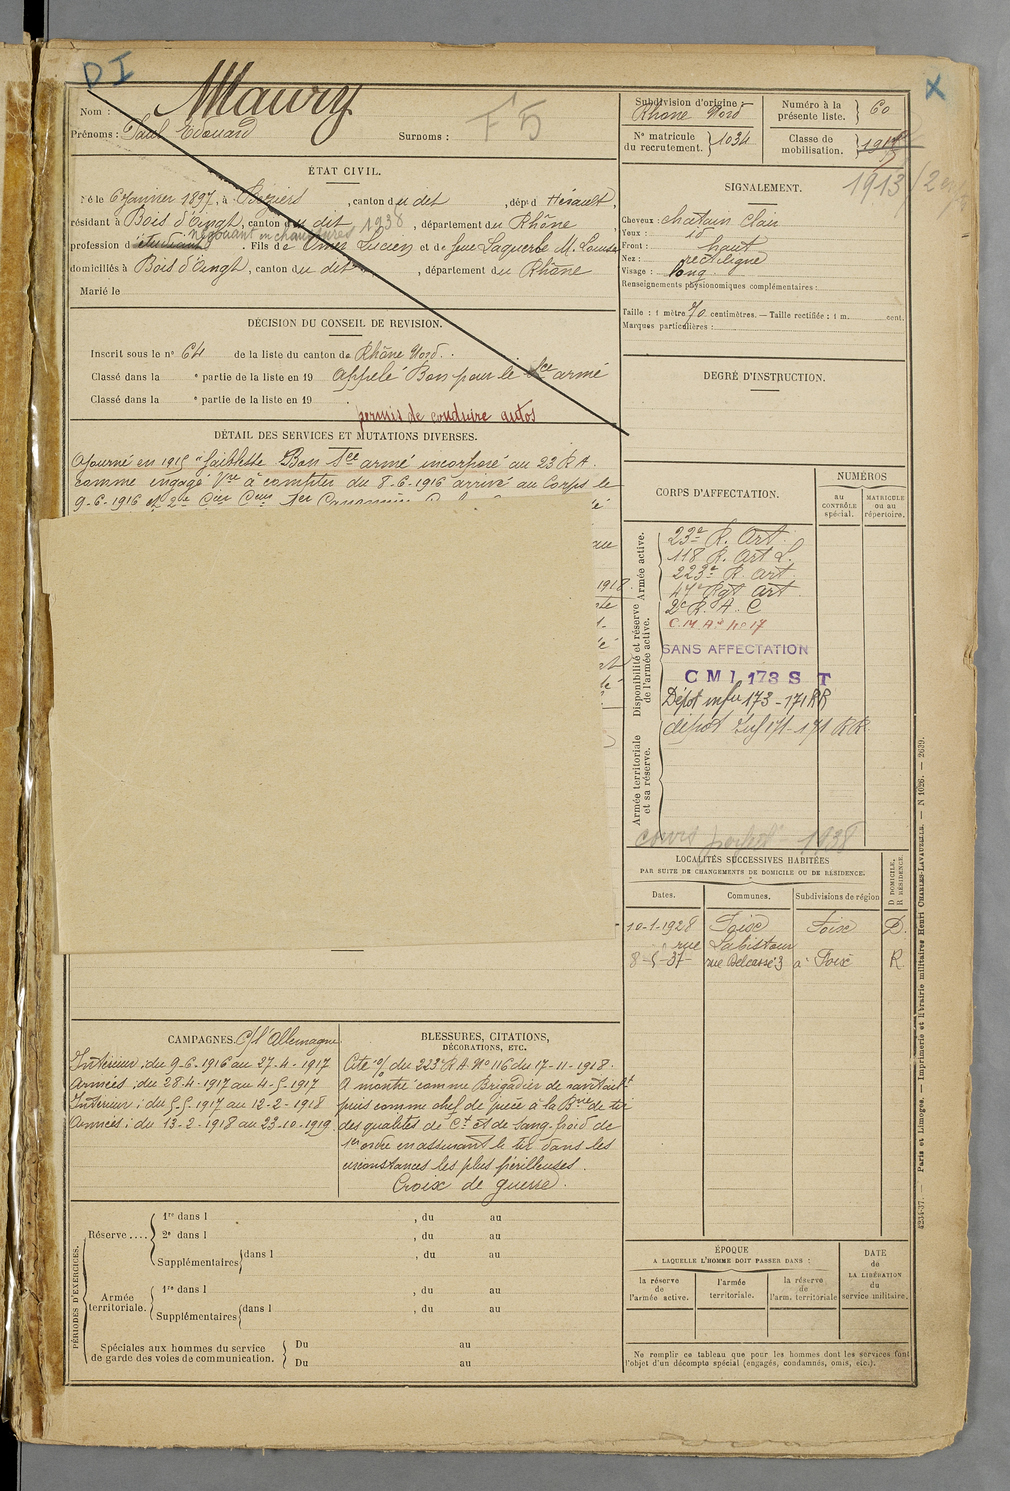 D I
X
Nom : Maury
Prénoms : Paul Edouard
Surnoms :
F 5
ÉTAT CIVIL.
Né le 6 Janvier 1897, à Beziers, canton du dit, dépt d Hérault,
résidant à Bois d'Oingt, canton du dit 1938, département du Rhône
négociant en chaussures
profession d'étudiant. Fils de Omer Lucien et de Jne Laquerbe M. Louise
domiciliés à Bois d'Oingt, canton du dit, département du Rhône
Marié le
DÉCISION DU CONSEIL DE REVISION.
Inscrit sous le n° 64 de la liste du canton de Rhône Nord.
Classé dans la e partie de la liste en 19 Appelé Bon pour le Sce armé
Classé dans la e partie de la liste en 19
permis de conduire autos
DÉTAIL DES SERVICES ET MUTATIONS DIVERSES.
Ajourné en 1915 "faiblesse Bon Sce armé incorporé au 23 R A.
comme engagé Vre à compter du 8-6-1916 arrivé au Corps le
9-6-1916 et 2me Cer
au
1918
Subdivision d'origine :
Rhône Nord
Numéro à la
présente liste. 60
N° matricule
du recrutement. 1034
Classe de
mobilisation.
1913
SIGNALEMENT.
Cheveux : chatain clair
Yeux : id
Front : haut
Nez : rectiligne
Visage : long
Renseignements physionomiques complémentaires :
Taille : 1 mètre 70 centimètres. — Taille rectifiée : 1 m. cent.
Marques particulières :
DEGRÉ D'INSTRUCTION.
CORPS D'AFFECTATION.
NUMÉROS
au
CONTRÔLE
spécial.
MATRICULE
ou au
répertoire.
Armée active.
23e R. Art.
118 R. Art L.
223e R. Art
47e Rgt Art
Disponibilité et réserve
de l'armée active.
2e R. A. C
C. M. A. n° 17
SANS AFFECTATION
C M I 173 S T
Dépôt infie 173 - 171 RR
Armée territoriale
et sa réserve.
dépôt Inf 171 - 171 RR
cours 1938
LOCALITÉS SUCCESSIVES HABITÉES
PAR SUITE DE CHANGEMENTS DE DOMICILE OU DE RÉSIDENCE.
D DOMICILE,
R RÉSIDENCE.
Dates. Communes. Subdivisions de région
10-1-1928 Foix Foix D.
rue Labistour
8-5-37- rue Delcassé 3 à Foix R
CAMPAGNES. C/ l'Allemagne
Intérieur : du 9-6-1916 au 27-4-1917
Armées : du 28-4-1917 au 4-5-1917
Intérieur : du 5-5-1917 au 12-2-1918
Armées : du 13-2-1918 au 23-10-1919
BLESSURES, CITATIONS,
DÉCORATIONS, ETC.
Cité o/ du 223e R A. No 116 du 17-11-1918.
A montré comme Brigadier de ravitailt
puis comme chef de pièce à la Brie de tir
des qualités de Ct et de sang-froid de
1er ordre en assurant le tir dans les
circonstances les plus périlleuses.
Croix de guerre.
PÉRIODES D'EXERCICES.
Réserve....
1re dans l , du au
2e dans l , du au
Supplémentaires dans l , du au
Armée
territoriale.
1re dans l , du au
Supplémentaires dans l , du au
Spéciales aux hommes du service
de garde des voies de communication.
Du au
Du au
ÉPOQUE
A LAQUELLE L'HOMME DOIT PASSER DANS :
la réserve
de
l'armée active.
l'armée
territoriale.
la réserve
de
l'arm. territoriale
DATE
de
LA LIBÉRATION
du
service militaire.
Ne remplir ce tableau que pour les hommes dont les services font
l'objet d'un décompte spécial (engagés, condamnés, omis, etc.).
4234-37. — Paris et Limoges. — Imprimerie et librairie militaires Henri CHARLES-LAVAUZELLE. — N 1026. — 2639.